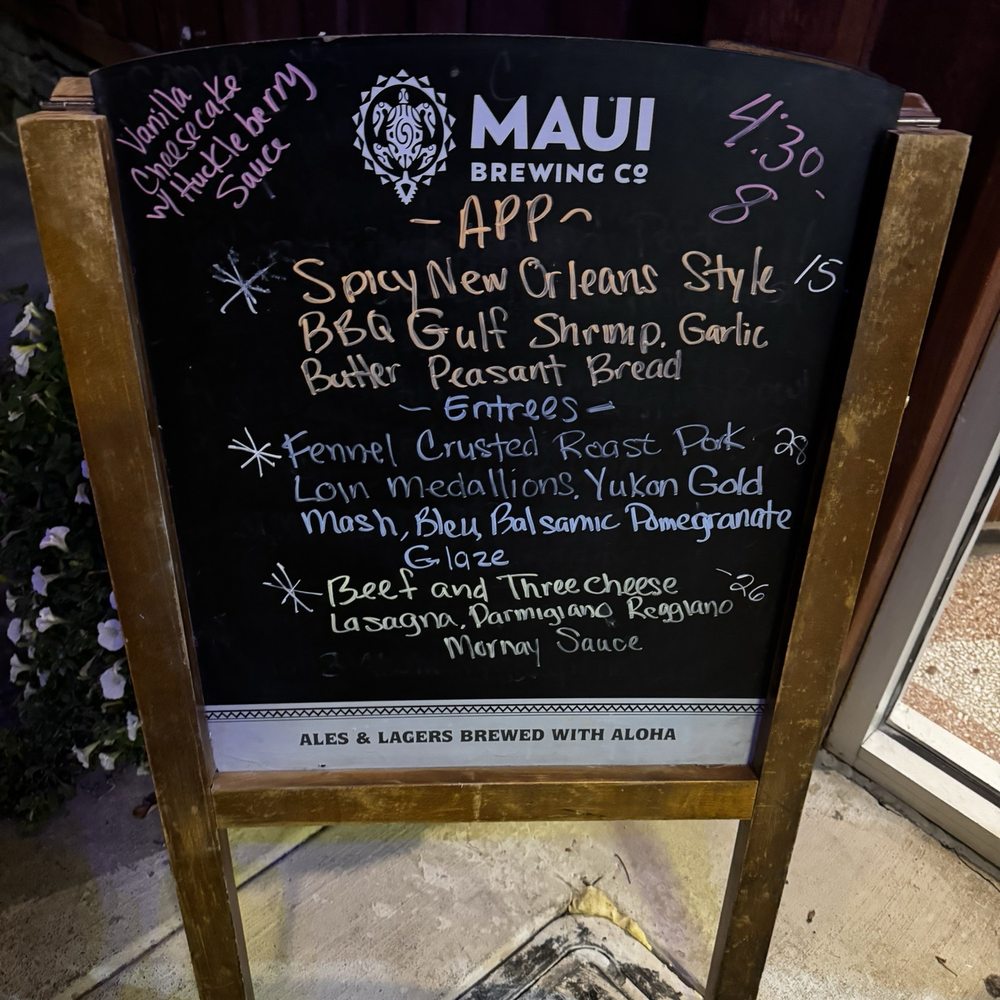 Vanilla
Cheesecake
w/ Huckleberry
Sauce
MAUI
BREWING CO
4:30-
8
- APP ~
* Spicy New Orleans Style 15
BBQ Gulf Shrimp, Garlic
Butter Peasant Bread
~ Entrees -
* Fennel Crusted Roast Pork 28
Loin Medallions, Yukon Gold
Mash, Bleu, Balsamic Pomegranate
Glaze
* Beef and Three cheese 26
Lasagna, Parmigiano Reggiano
Mornay Sauce
ALES & LAGERS BREWED WITH ALOHA